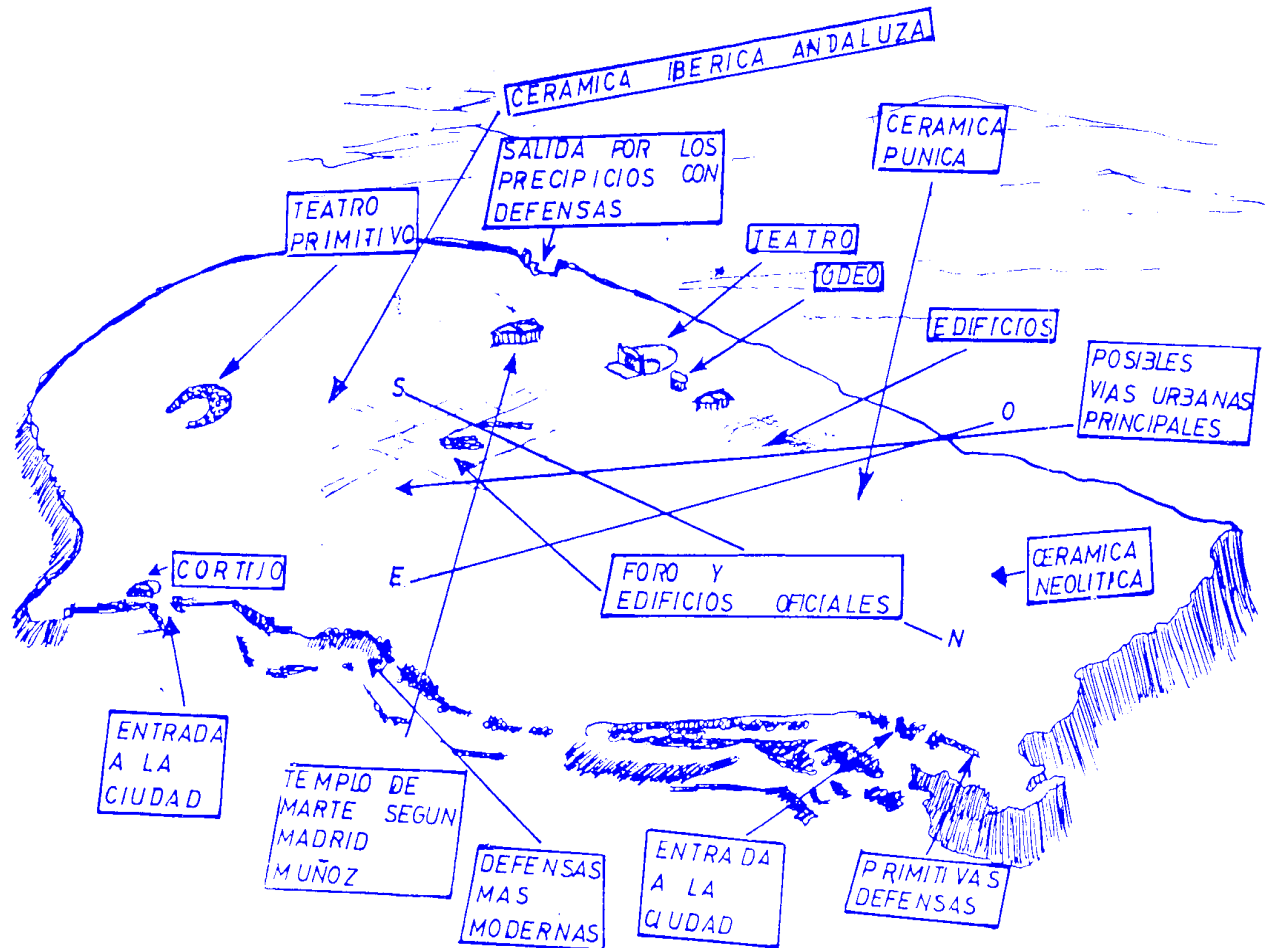 CERAMICA IBERICA ANDALUZA
SALIDA POR LOS
PRECIPICIOS CON
DEFENSAS
CERAMICA
PUNICA
TEATRO
PRIMITIVO
TEATRO
ODEO
EDIFICIOS
POSIBLES
VIAS URBANAS
PRINCIPALES
S
O
CORTIJO
E
FORO Y
EDIFICIOS OFICIALES
CERAMICA
NEOLITICA
N
ENTRADA
A LA
CIUDAD
TEMPLO DE
MARTE SEGUN
MADRID
MUÑOZ
DEFENSAS
MAS
MODERNAS
ENTRADA
A LA
CIUDAD
PRIMITIVAS
DEFENSAS